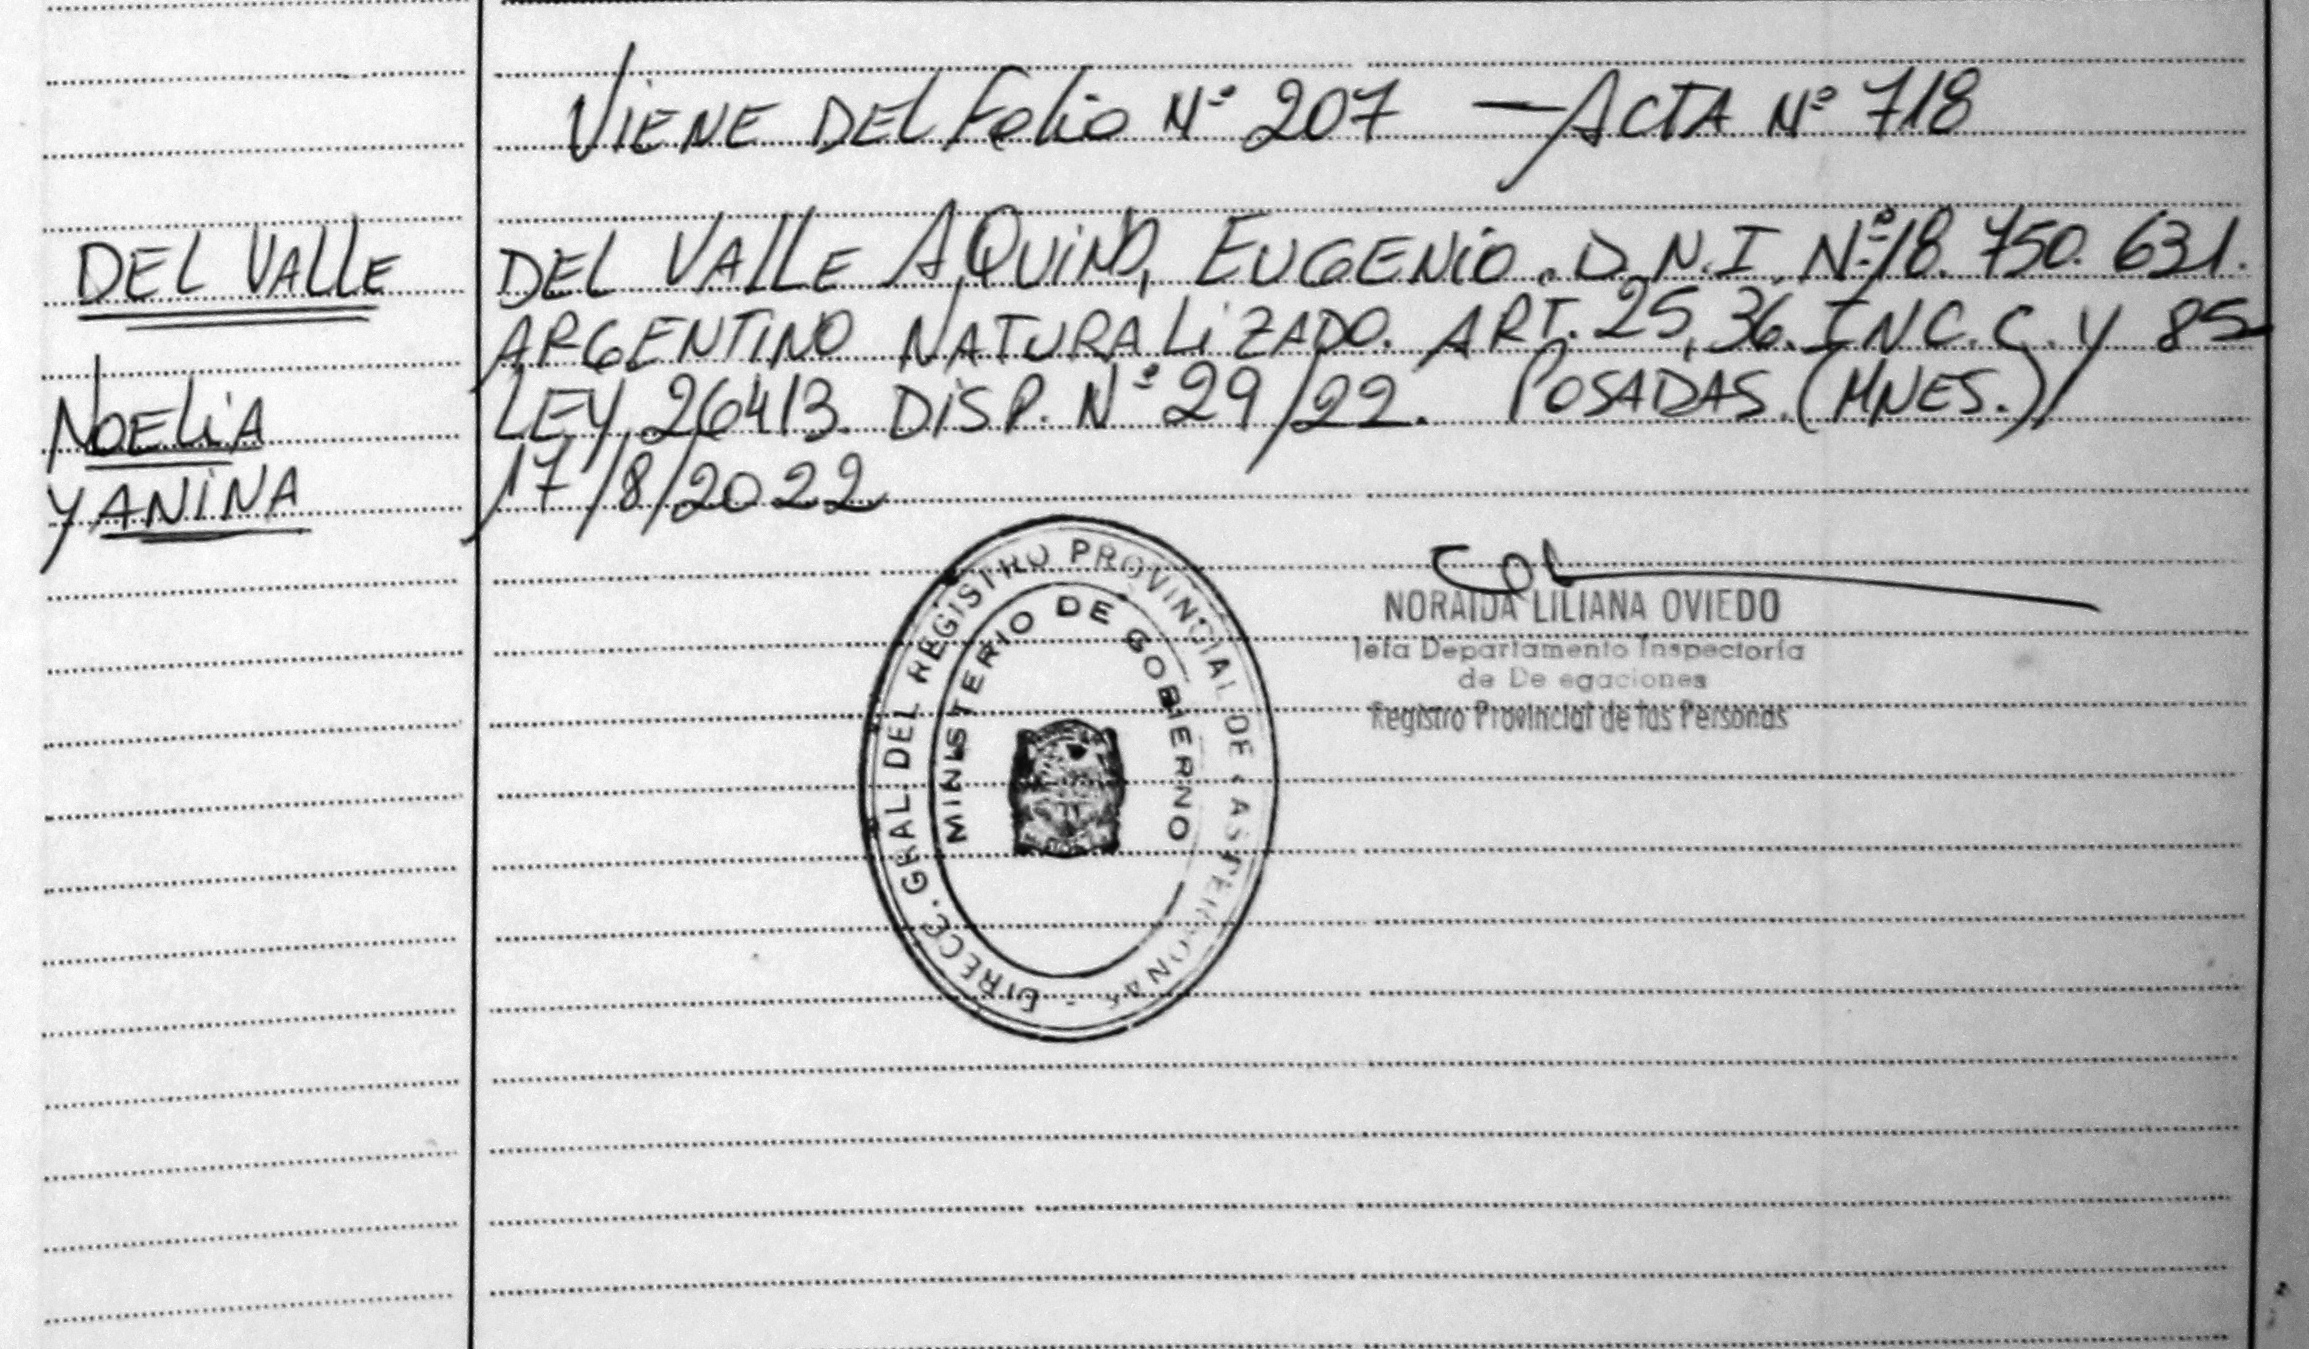 VIENE DEL Folio Nº 207 — ACTA Nº 718
DEL VALLE
NOELIA
YANINA
DEL VALLE AQUINO, EUGENIO. D.N.I. Nº 18.750.631.
ARGENTINO NATURALIZADO. ART. 25, 36. INC. C. Y 85
LEY 26413. DISP. Nº 29/22. POSADAS. (MNES.)
17/8/2022
DIRECC. GRAL. DEL REGISTRO PROVINCIAL DE LAS PERSONAS -
MINISTERIO DE GOBIERNO
NORAIDA LILIANA OVIEDO
Jefa Departamento Inspectoría
de De egaciones
Registro Provincial de las Personas